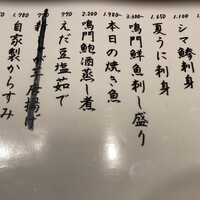 1.100 シマ鯵刺身
1.650 夏うに刺身
3.300〜 鳴門鮮魚刺し盛り
1.980〜 本日の焼き魚
2.200 鳴門鮑酒蒸し煮
770 えだ豆塩茹で
770
1.980 自家製からすみ